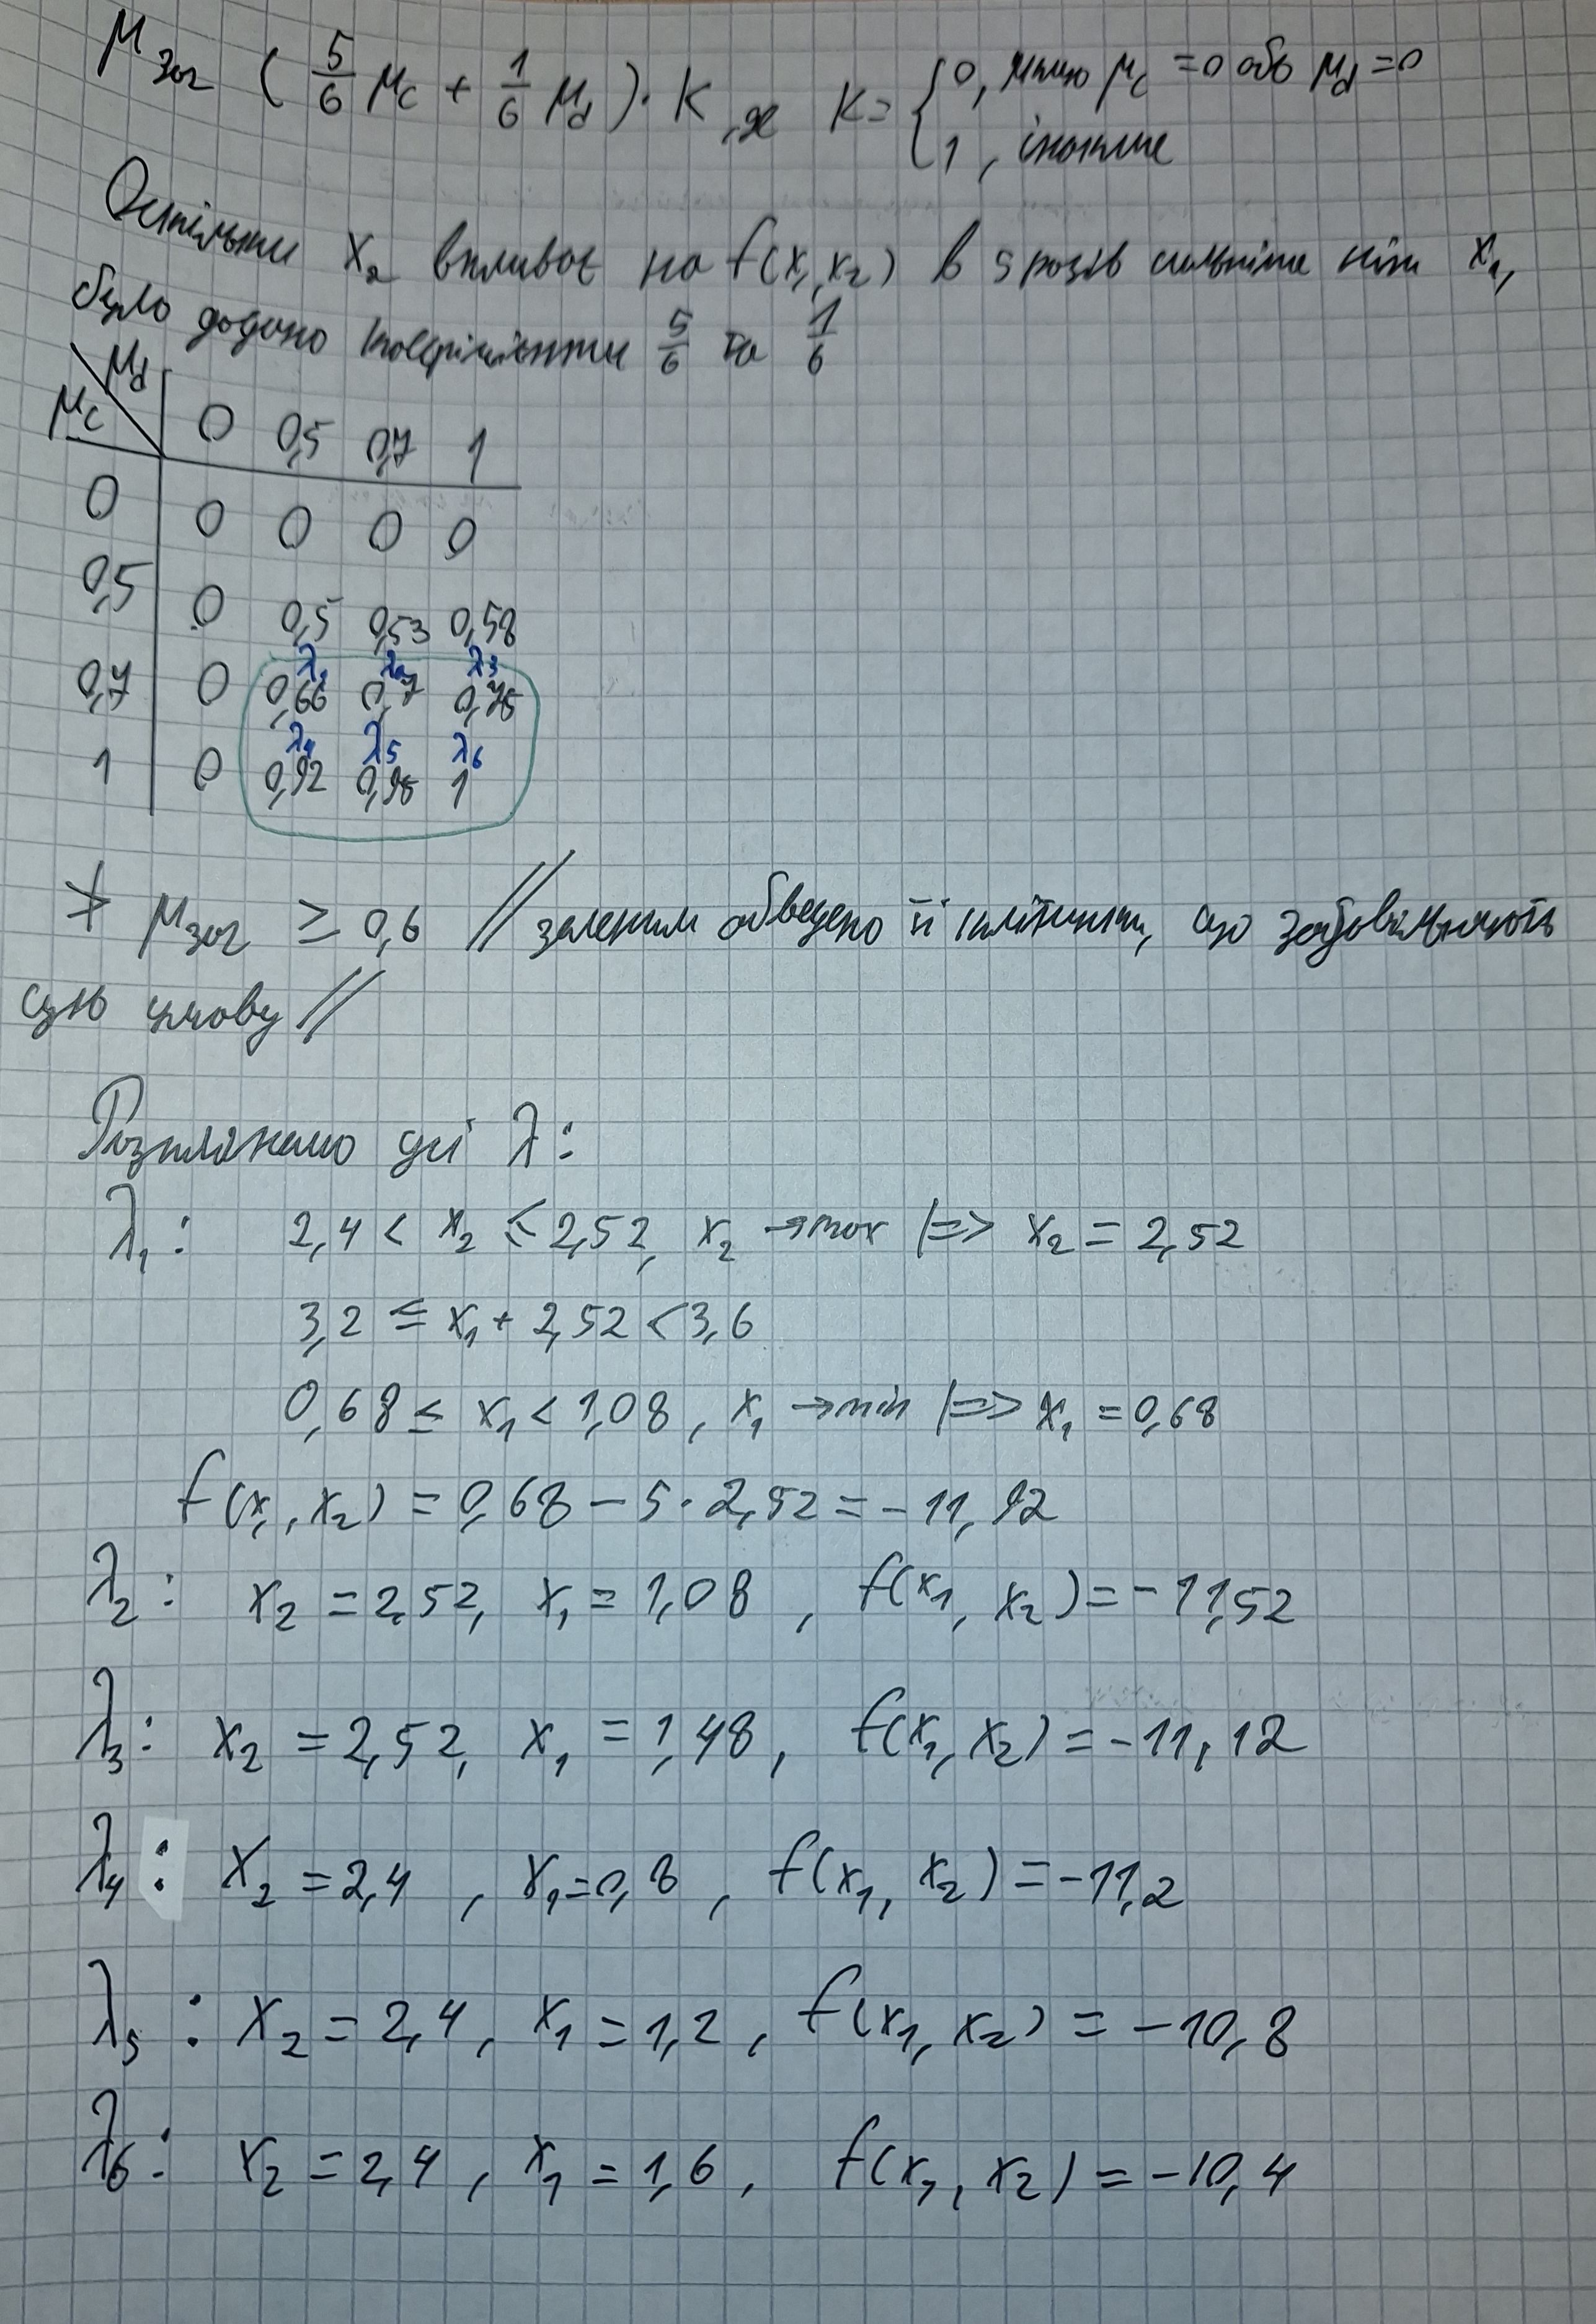 μ заг (5/6 μc + 1/6 μd) · K, де K = { 0, якщо μc = 0 або μd = 0
1, інакше
Оскільки x₂ впливає на f(x₁, x₂) в 5 разів сильніше ніж x₁,
було додано коефіцієнти 5/6 та 1/6
μc \ μd 0 0,5 0,7 1
0 0 0 0 0
0,5 0 0,5 0,53 0,58
λ₁ λ₂ λ₃
0,7 0 0,66 0,7 0,75
λ₄ λ₅ λ₆
1 0 0,92 0,95 1
μ заг ≥ 0,6 // зеленим обведено ті клітинки, що задовільняють
цю умову //
Розглянемо ці λ:
λ₁: 2,4 < x₂ ≤ 2,52, x₂ → max |=> x₂ = 2,52
3,2 ≤ x₁ + 2,52 < 3,6
0,68 ≤ x₁ < 1,08, x₁ → min |=> x₁ = 0,68
f(x₁, x₂) = 0,68 - 5 · 2,52 = -11,92
λ₂: x₂ = 2,52, x₁ = 1,08, f(x₁, x₂) = -11,52
λ₃: x₂ = 2,52, x₁ = 1,48, f(x₁, x₂) = -11,12
λ₄: x₂ = 2,4, x₁ = 0,8, f(x₁, x₂) = -11,2
λ₅: x₂ = 2,4, x₁ = 1,2, f(x₁, x₂) = -10,8
λ₆: x₂ = 2,4, x₁ = 1,6, f(x₁, x₂) = -10,4